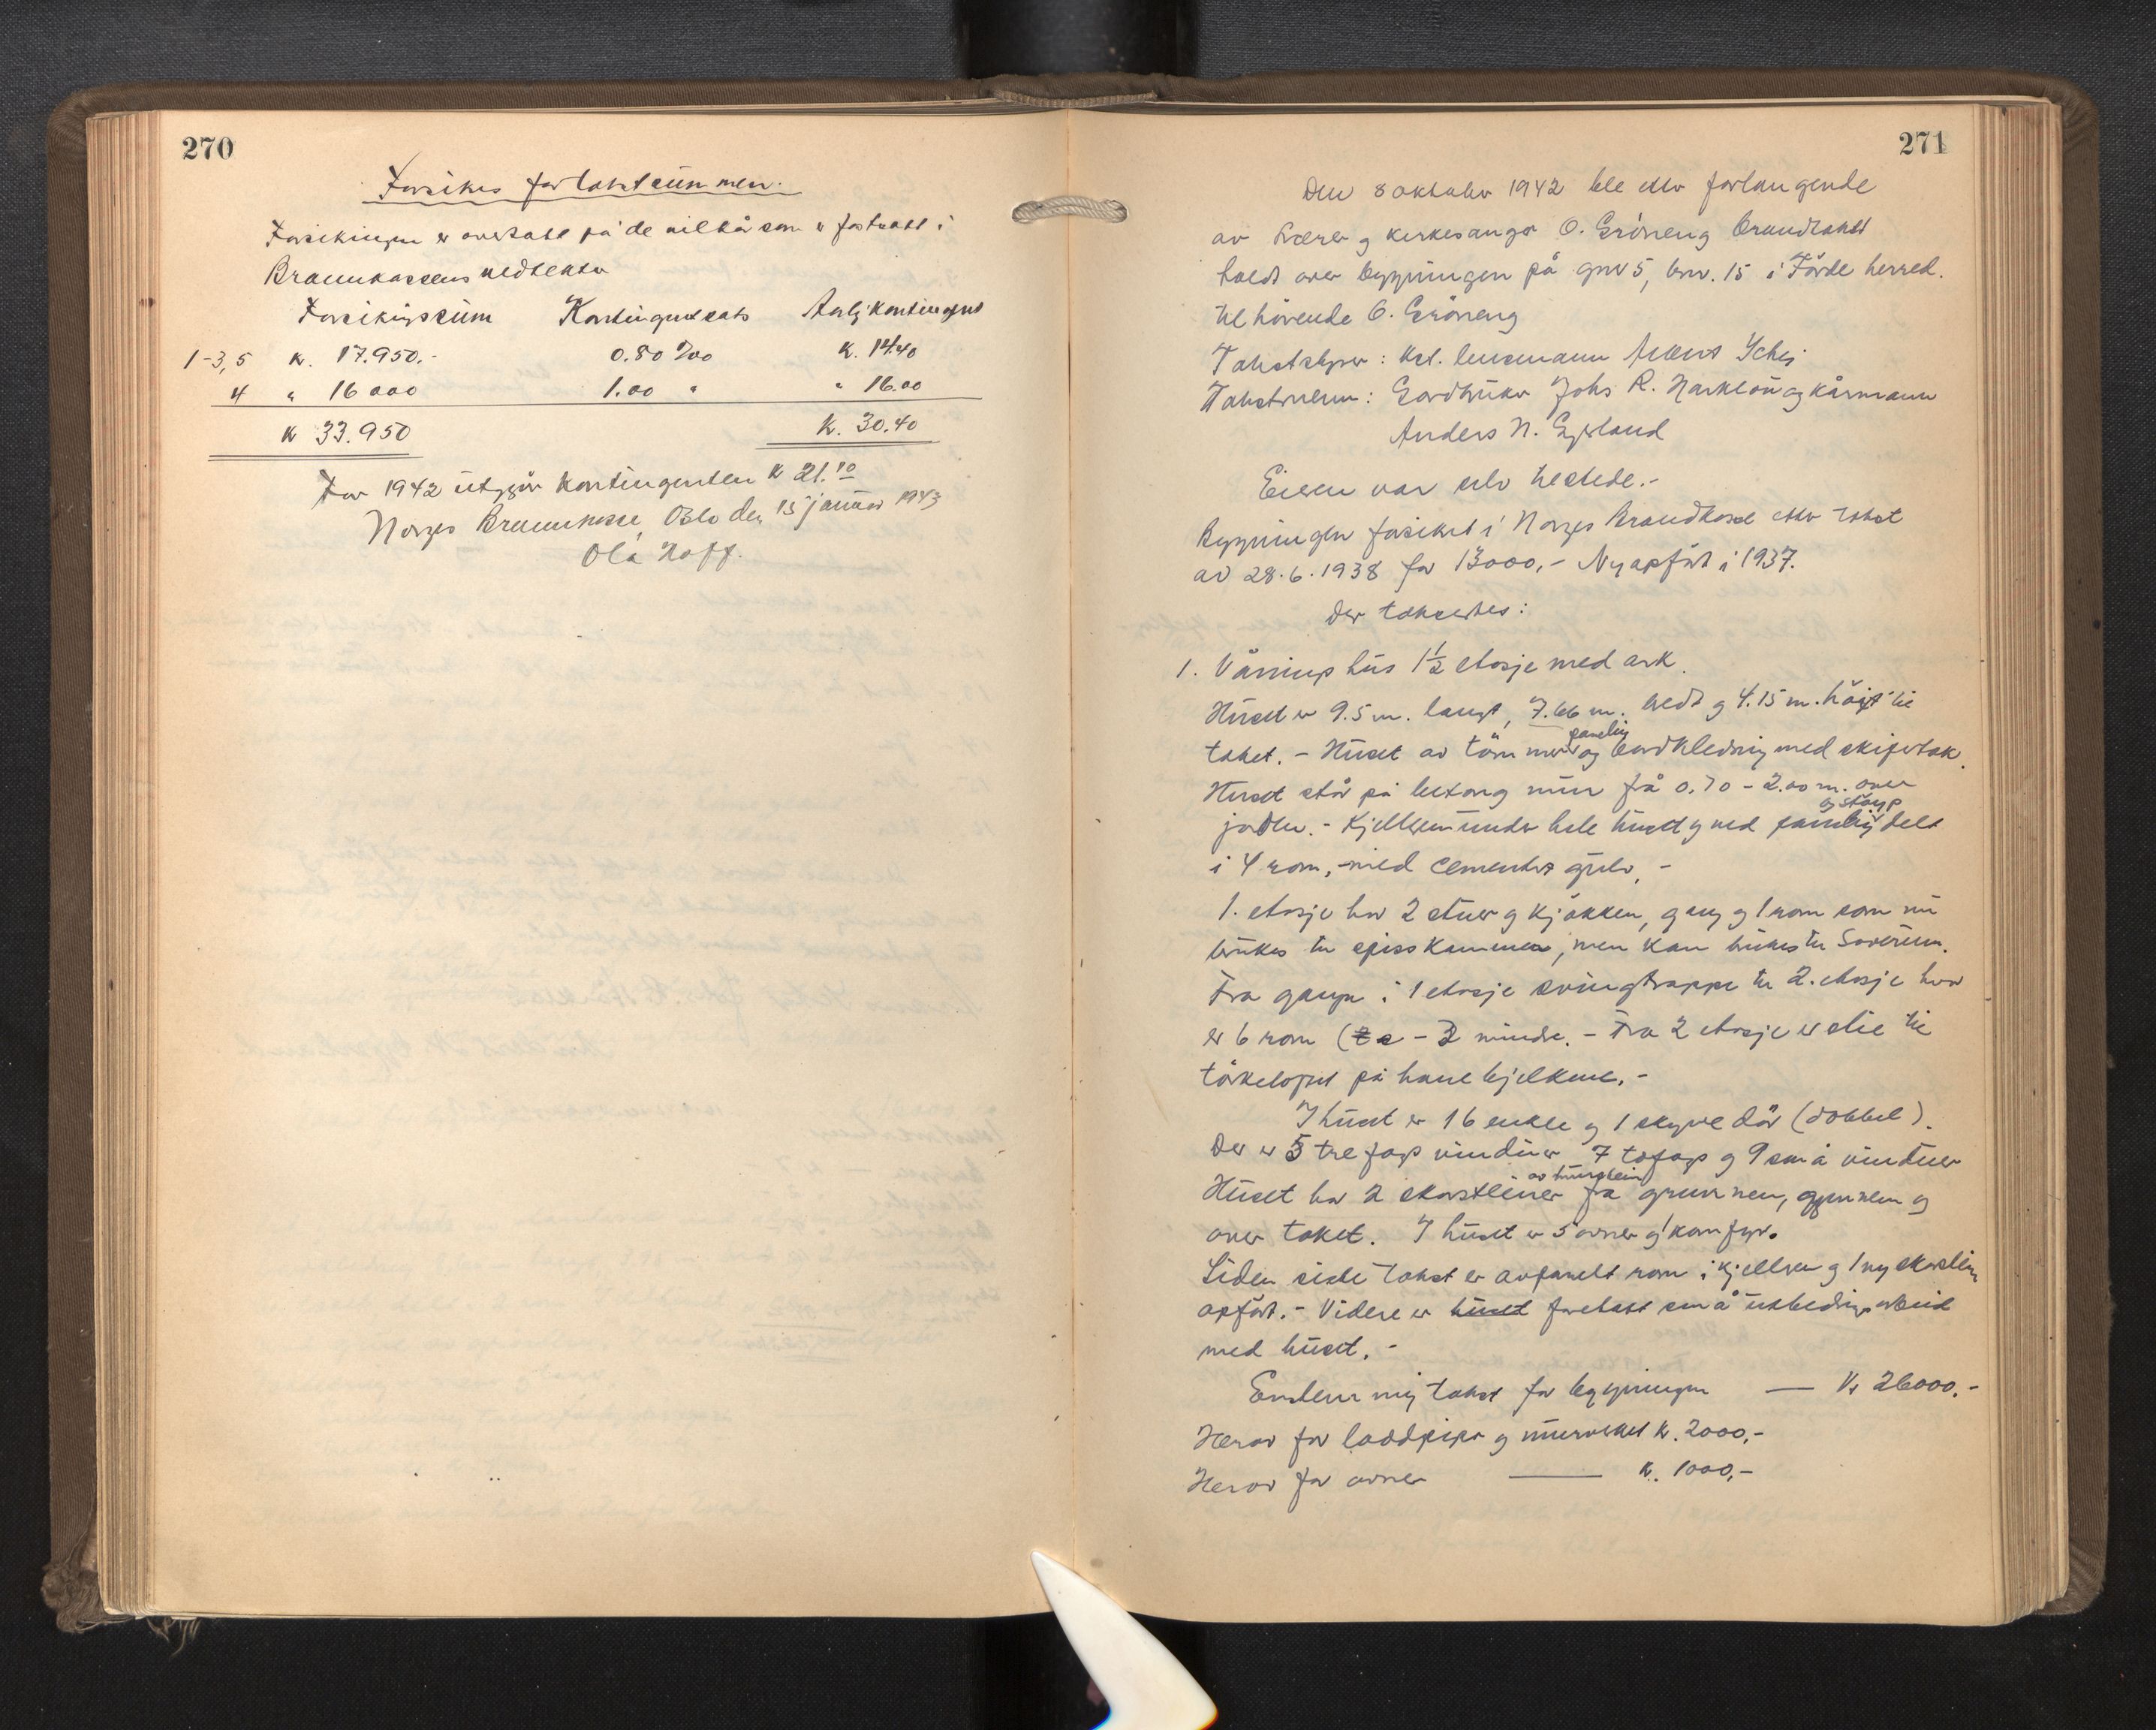 270
Forsikres for takstsummen.
Forsikringen er overtatt på de vilkår som er fastsatt i
Brannkassens vedtekter
Forsikringssum Kontingentsats Aarlig kontingent
1-3,5 k. 17.950.- 0.80 ‰ k. 14.40
4 " 16000 1.00 " " 16.00
k 33.950 k. 30.40
For 1942 utgjør kontingenten k 21.10
Norges Brannkasse, Oslo den 15 januar 1943
Ola Hoff.
271
Den 8 oktober 1942 ble etter forlangende
av Lærer og kirkesanger O. Gröneng brandtakst
holdt over bygningen på gnr 5, bnr. 15 i Förde herred.
tilhörende O. Gröneng
Takstbestyrer: Kst. lensmann Schei
Takstmenn: Gardbruker Johs R. Farsund og kårmann
Anders N.
Eieren var selv tilstede.-
Bygningen forsikret i Norges Brandkasse etter takst
av 28.6.1938 for 13000,- Ny opfört i 1937.
Der takseres:
1. Våningshus 1½ etasje med ark.
Huset er 9.5 m. langt, 7.66 m. bredt og 4.15 m. höigt til
taket. - Huset av tömmer panelig og bordkledning med skifertak.
Huset står på betong mur frå 0.70 - 2.00 m. over
jorden. - Kjelleren under hele huset og ved panelig og stöyp delt
i 4 rom, med cementert gulv. -
1. etasje har 2 stuer og kjökken, gang og 1 rom som nu
brukes til spisskammer, men kan brukes til Soverum.
Fra gangen i 1 etasje svingtrappe til 2. etasje hvor
er 6 rom ( - 3 mindre. - Fra 2 etasje er stie til
törkeloftet på hanebjelkene. -
I huset er 16 enkle og 1 skyve dör (dobbel).
Der er 5 tre fags vinduer 7 tofags og 9 små vinduer
Huset har 2 skorsteiner av murstein fra grunnen, gjennem og
over taket. I huset er 5 ovner og 1 komfyr.
Siden siste takst er avpanelt rom i kjelleren og 1 ny skorstein
opfört. - Videre er huset foretatt små utbedrings arbeid
med huset. -
Enstemmig takst for bygningen — kr 26000.-
Herav for loddpiper og murverket k. 2000.-
Herav for ovner — k. 1000,-